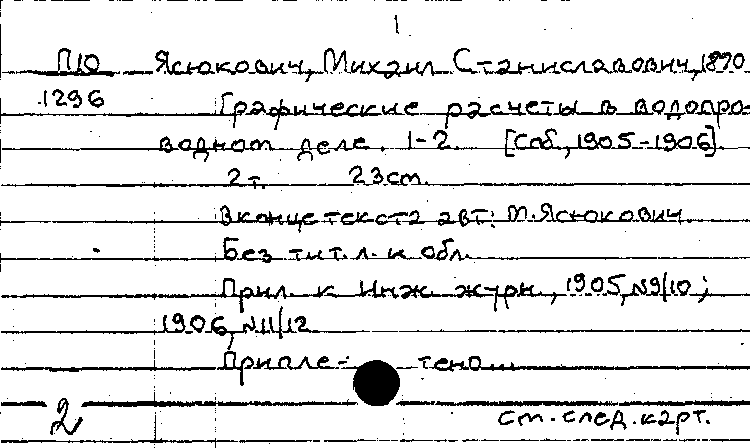 1
П10 Ясюкович, Михаил Станиславович, 1870
1296 Графические расчеты в водопро-
водном деле. 1-2. [Спб., 1905-1906].
2 т. 23 см.
В конце текста авт: М. Ясюкович.
Без тит. л. и обл.
Прил. к Инж. журн., 1905, №9/10;
1906, №11/12
Припле- тено...
2 см. след. карт.